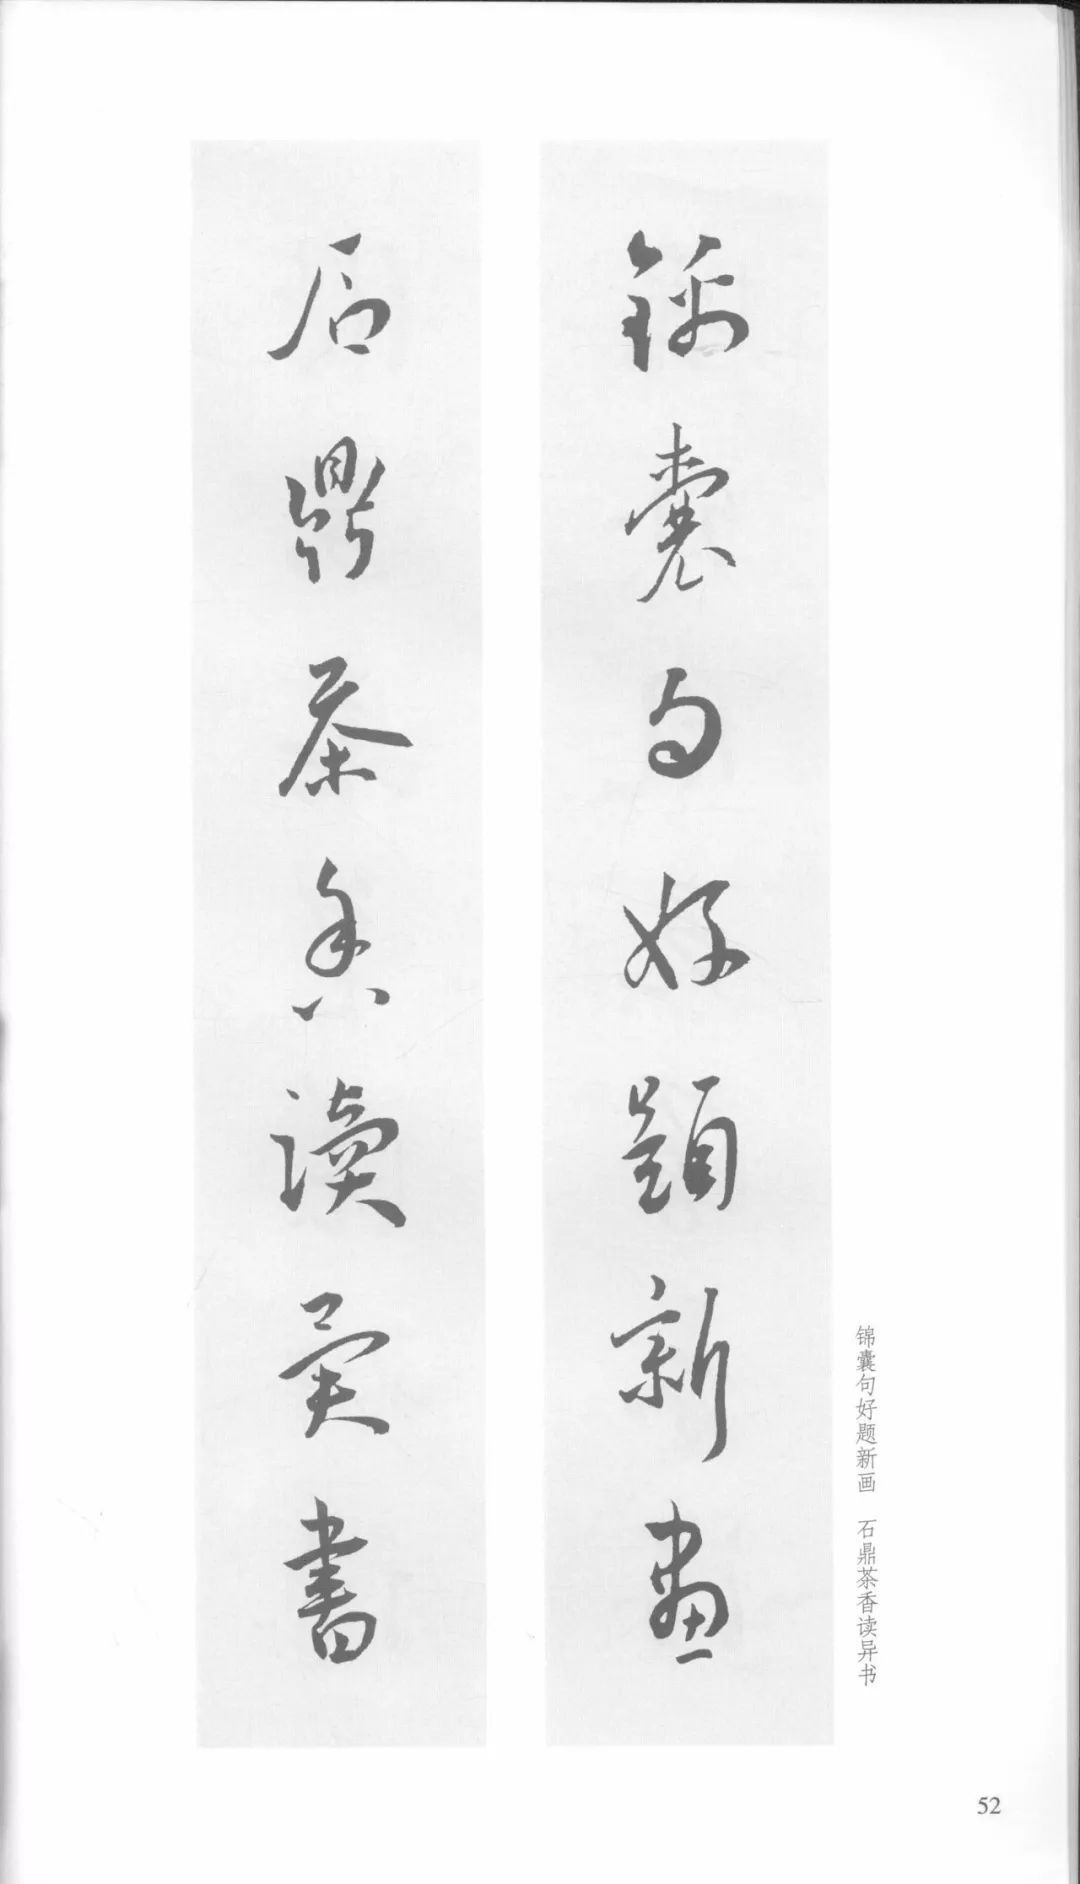 錦囊句好題新畫
石鼎茶香讀異書
锦囊句好题新画 石鼎茶香读异书
52